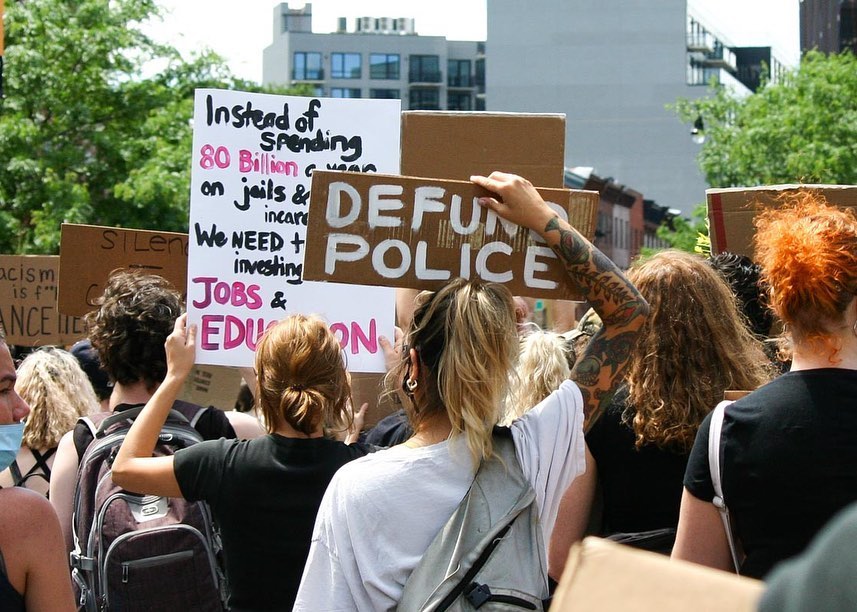 Instead of
spending
80 Billion a year
on jails &
incar
We NEED
investing
JOBS &
EDU ON
DEFUND
POLICE
SILEN
acism
is f**
ANCE